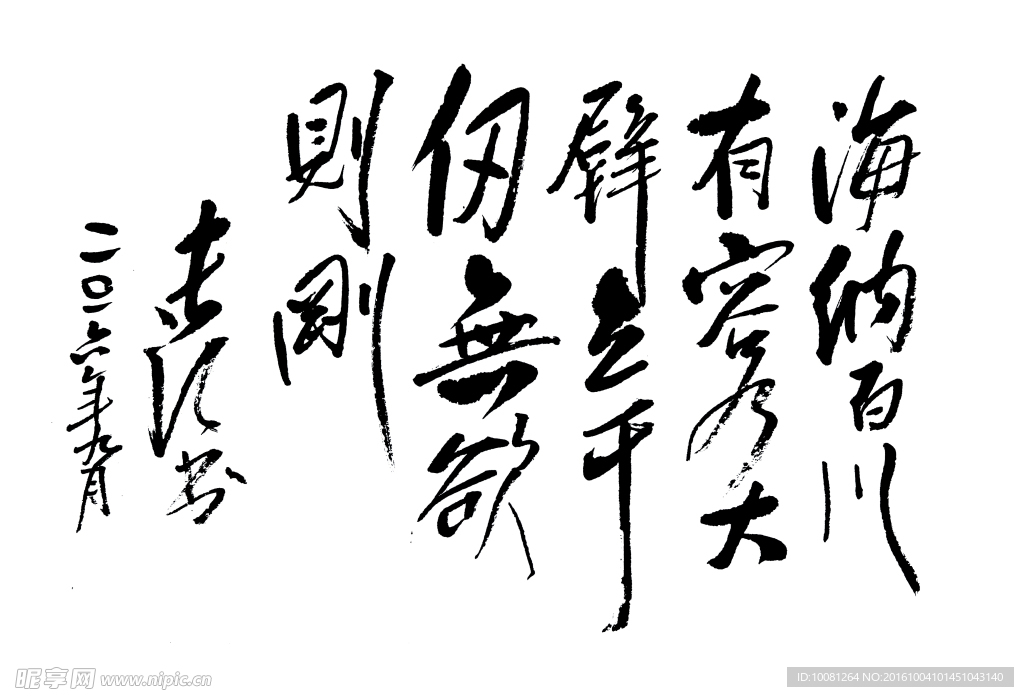 海納百川
有容乃大
壁立千
仞無欲
則剛
书
二〇一六年九月
昵享网 www.nipic.cn
ID:10081264 NO:20161004101451043140